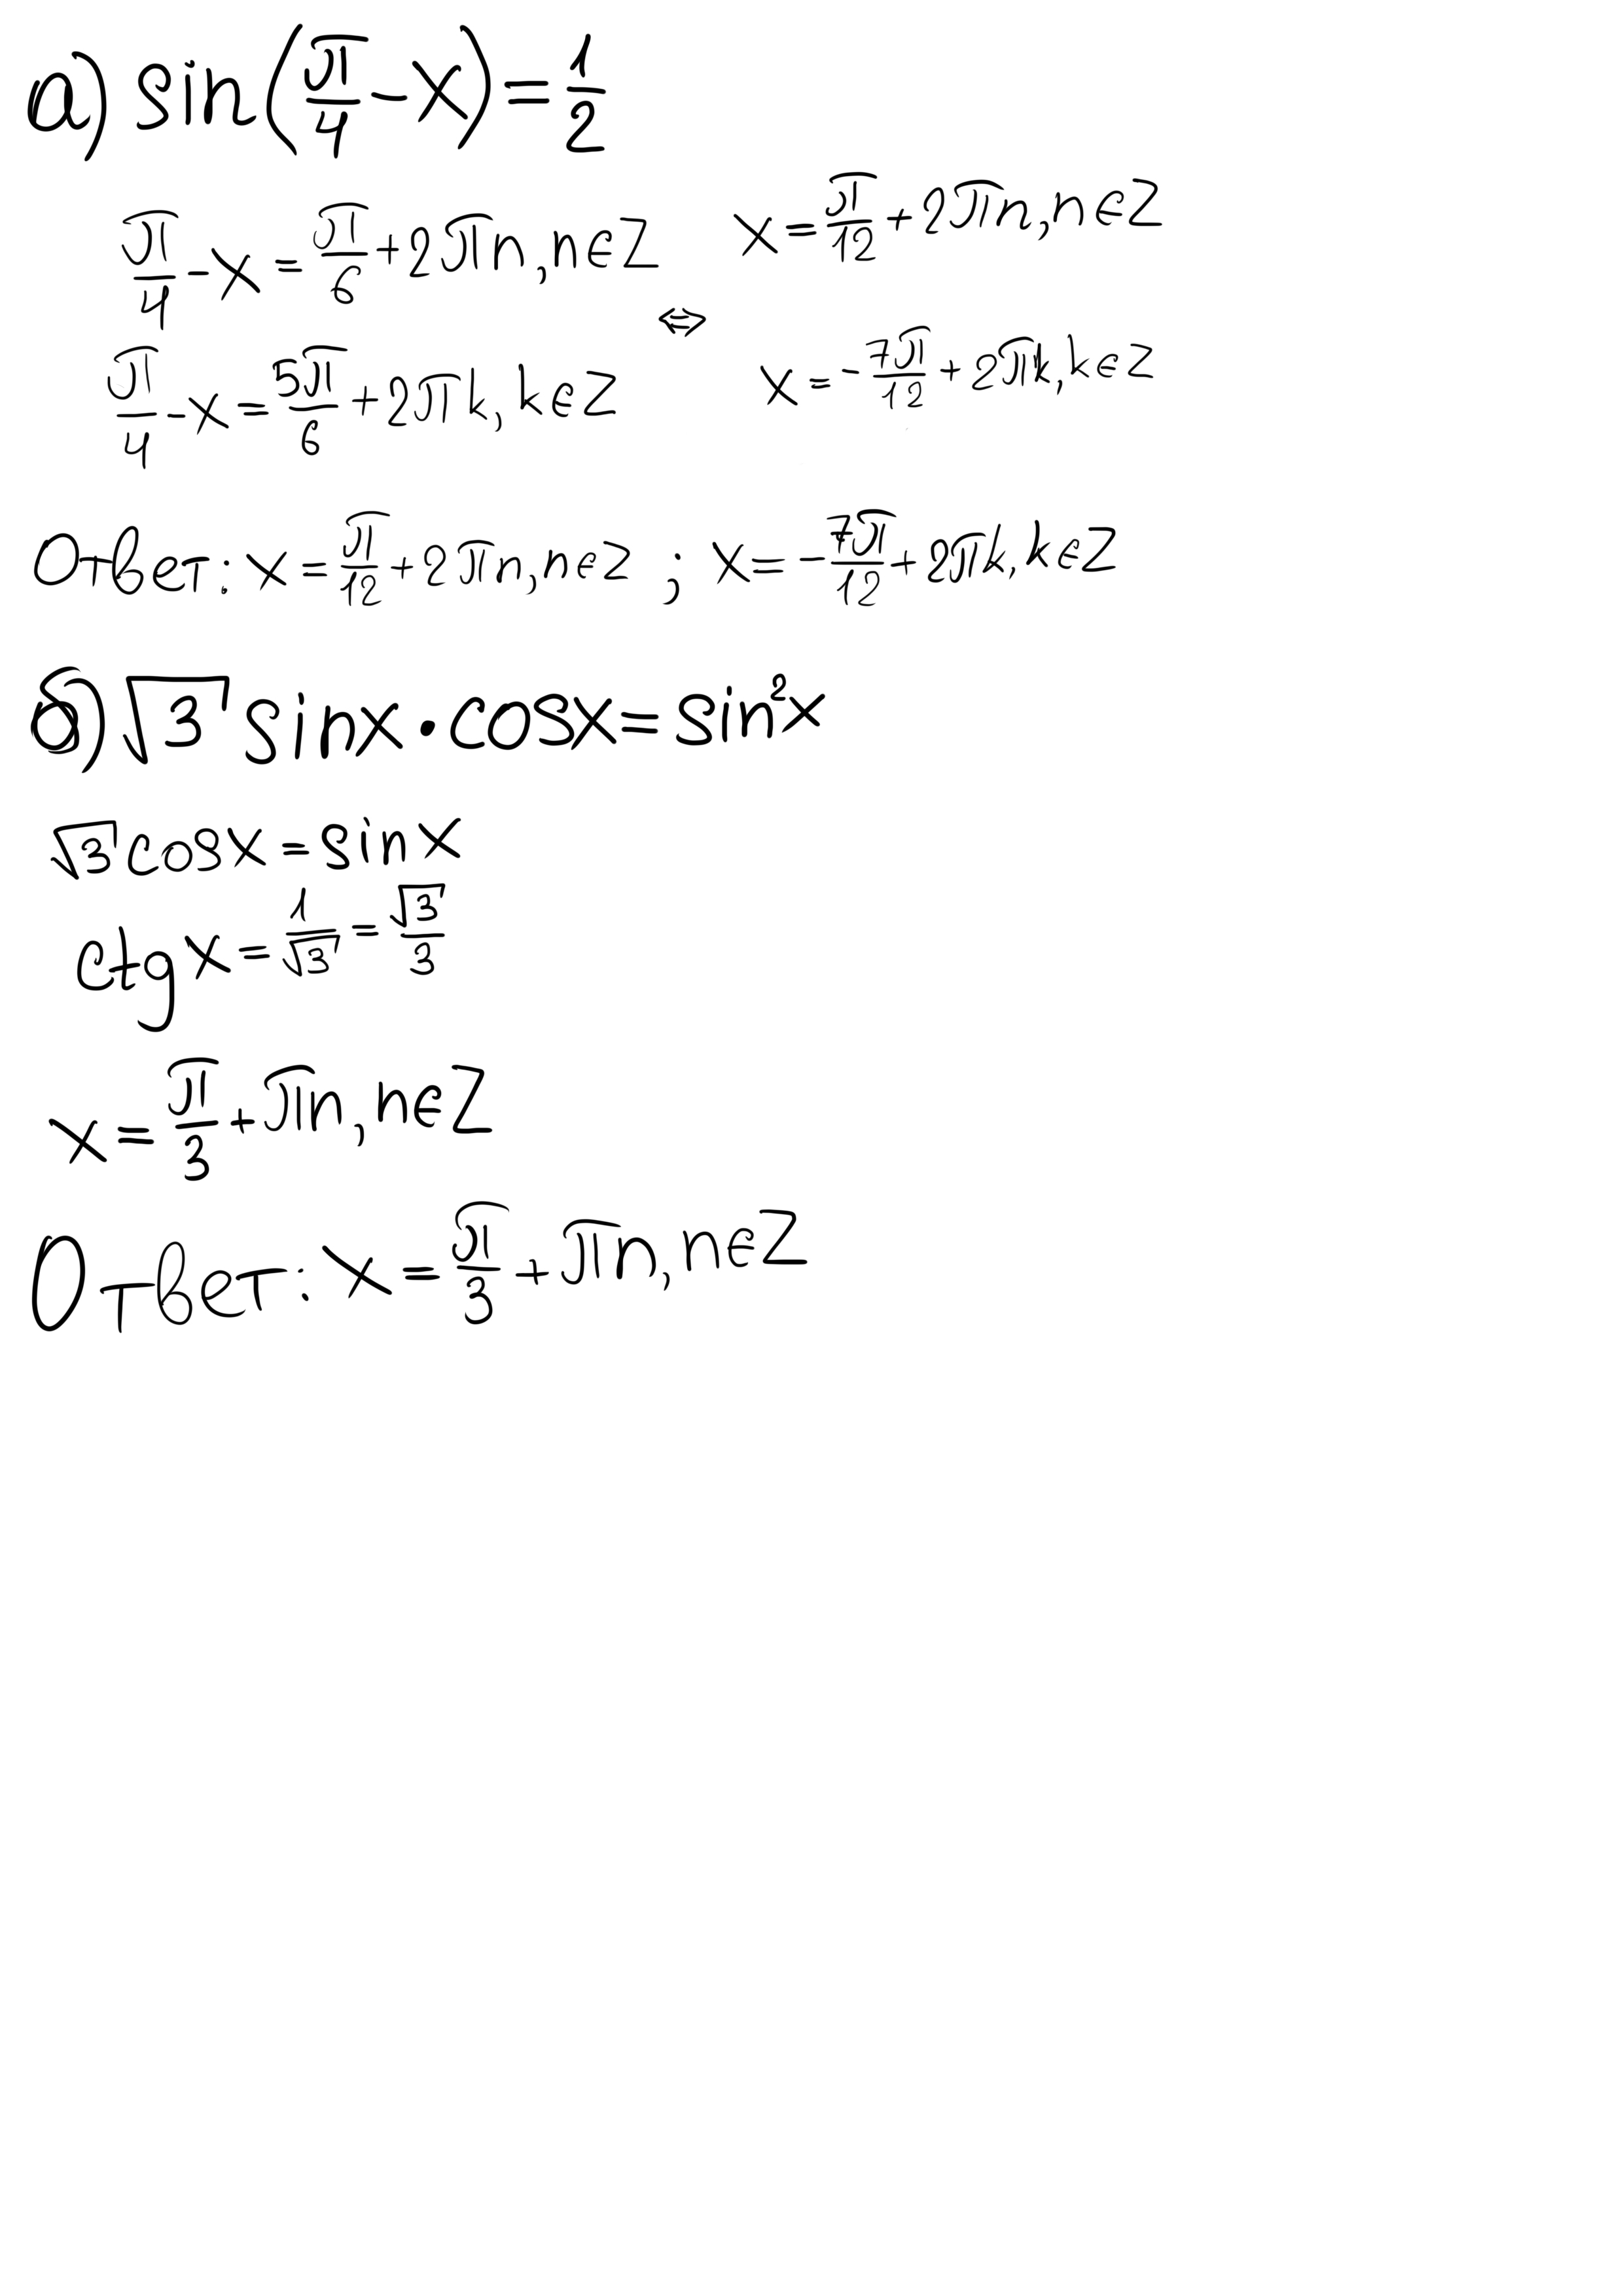 а) sin(π/4 - x) = 1/2
π/4 - x = π/6 + 2πn, n∈Z
π/4 - x = 5π/6 + 2πk, k∈Z
⇔
x = π/12 + 2πn, n∈Z
x = - 7π/12 + 2πk, k∈Z
Ответ: x = π/12 + 2πn, n∈Z ; x = - 7π/12 + 2πk, k∈Z
б) √3 sinx · cosx = sin²x
√3 cosx = sinx
ctg x = 1/√3 = √3/3
x = π/3 + πn, n∈Z
Ответ: x = π/3 + πn, n∈Z